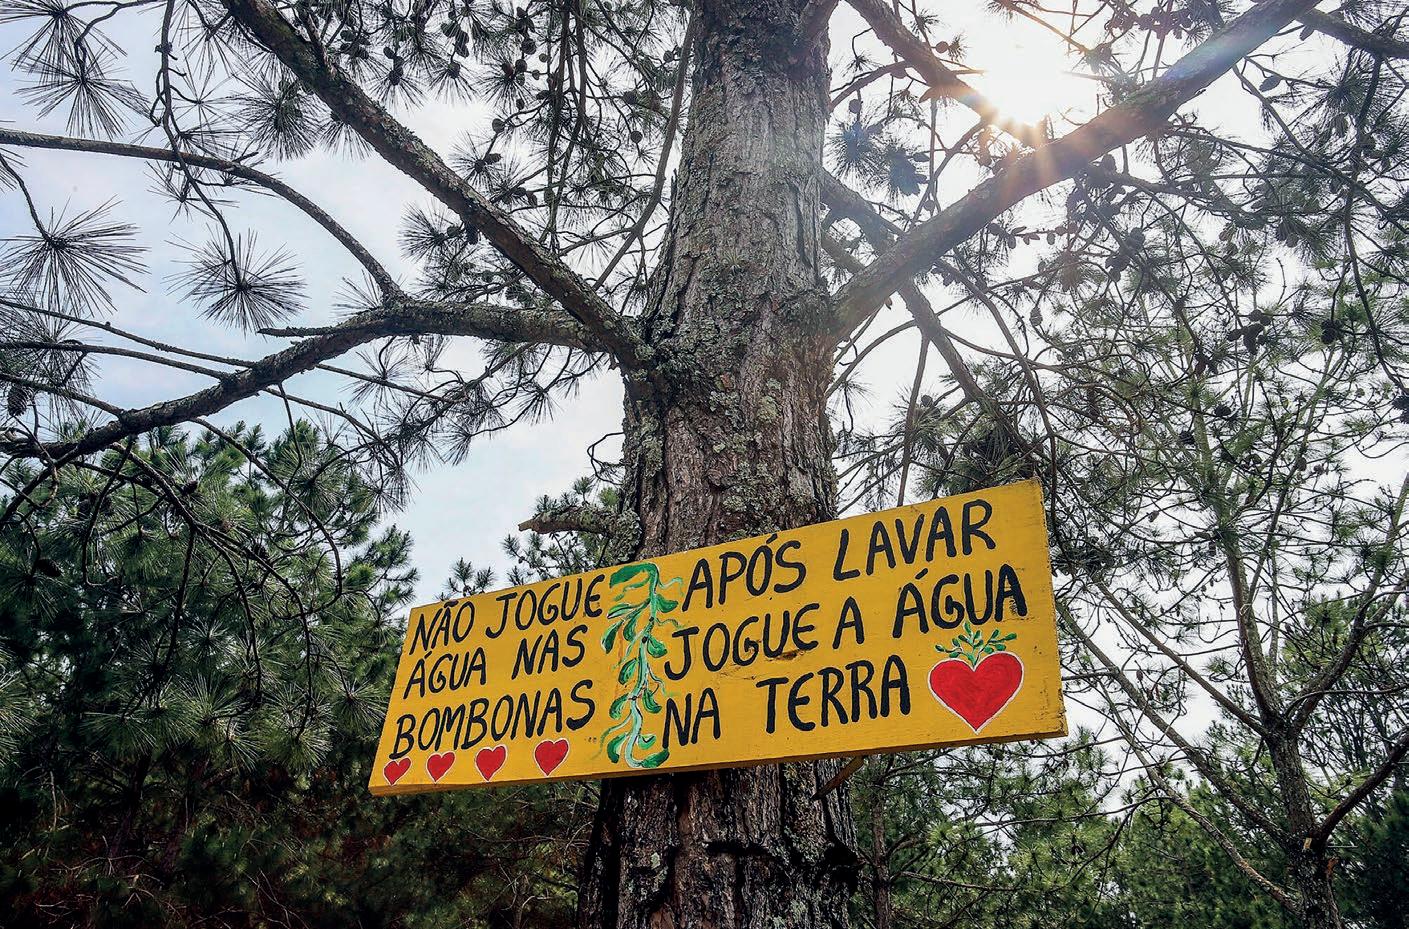 NÃO JOGUE
ÁGUA NAS
BOMBONAS
APÓS LAVAR
JOGUE A ÁGUA
NA TERRA